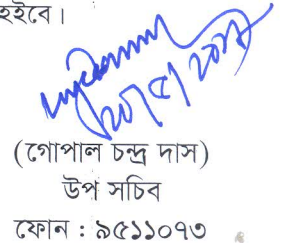 হইবে।
(গোপাল চন্দ্র দাস)
উপ সচিব
ফোন : ৯৫১১০৭৩